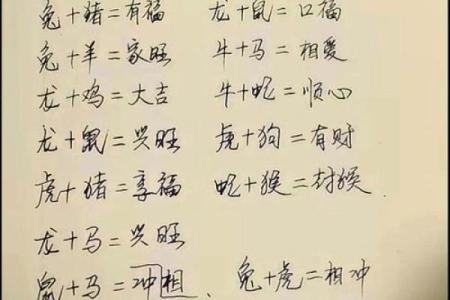 兔+猪=有福 龙+鼠=口福
兔+羊=家旺 牛+马=相爱
龙+鸡=大吉 牛+蛇=顺心
龙+鼠=兴旺 虎+狗=有财
虎+猪=享福 蛇+猴=封猴
龙+马=兴旺
鼠+马=冲相、兔+虎=相冲